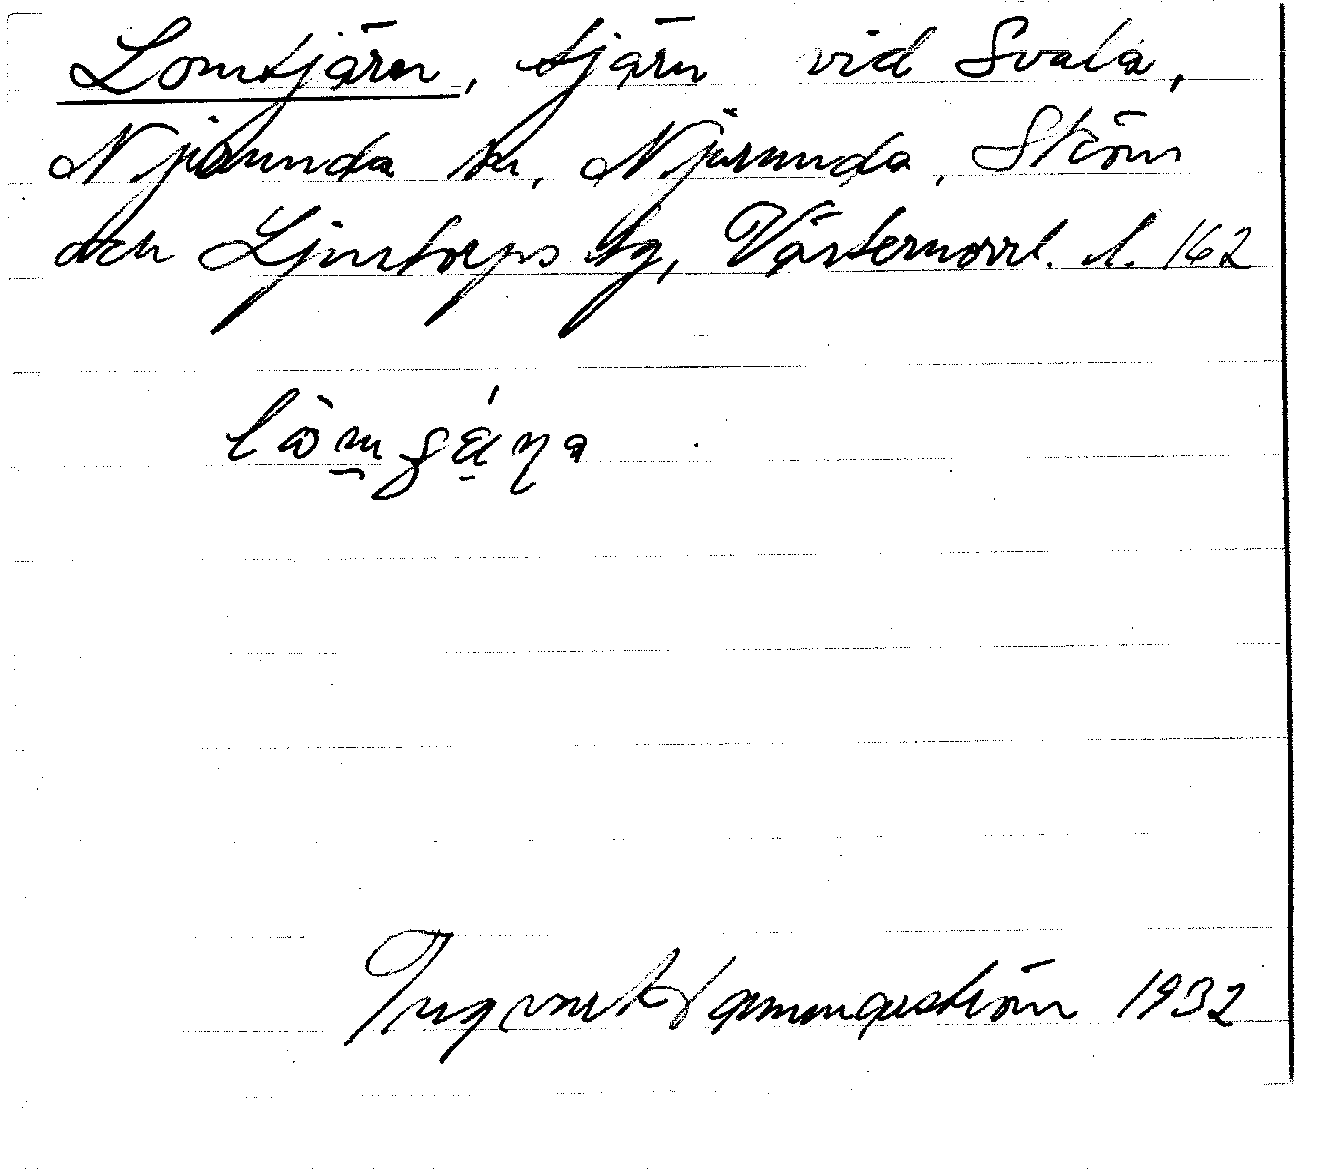 Lomtjärn, tjärn vid Svala,
Njurunda sn, Njurunda, Sköns
och Ljustorps tg, Västernorrl. l. 162
Ingvar Hammarström 1932